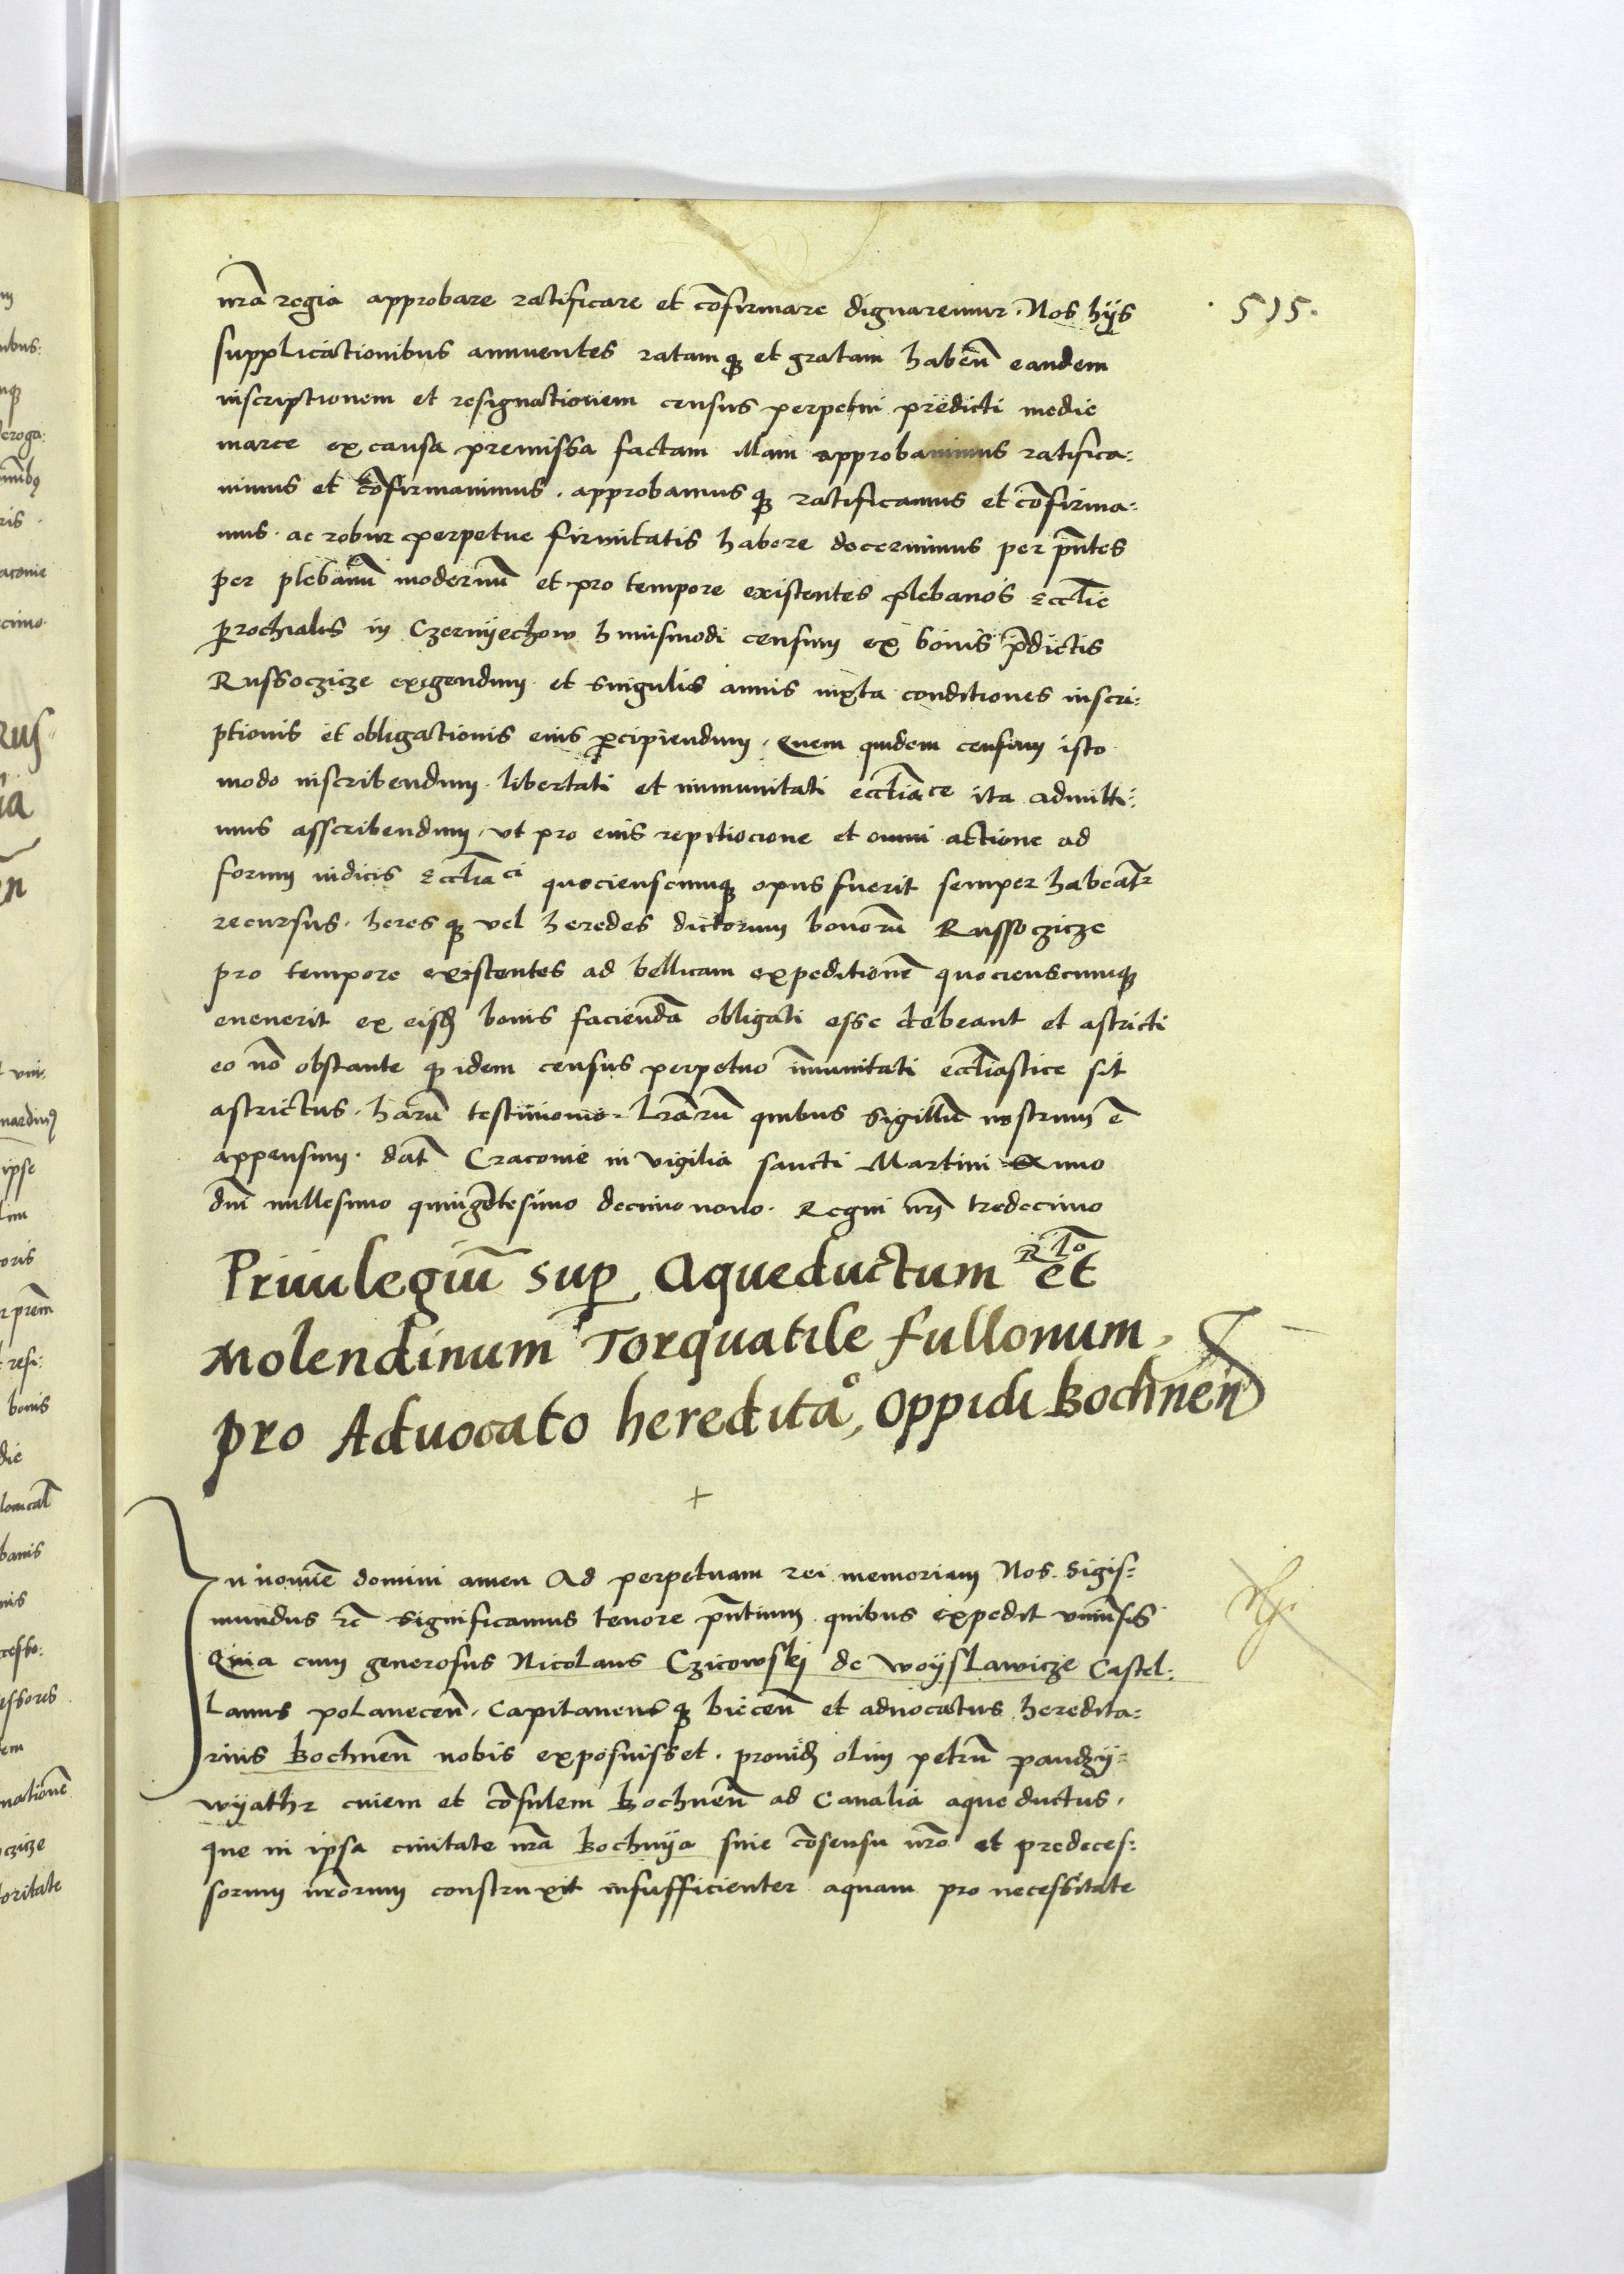 nrã regia approbare ratificare et cõfirmare dignaremur. Nos hijs
· 515 ·
supplicationibus annuentes ratamqȝ et gratam habeñ eandem
inscriptionem et resignationem census perpetui predicti medie
marce ex causa premissa factam illam approbauimus ratifica:
uimus et cõfirmauimus. approbamusqȝ ratificamus et cõfirma:
mus. ac robur perpetue firmitatis habere decernimus per pñtes
per plebanũ modernũ et pro tempore existentes plebanos Eccłie
ꝑrochialis in Czernyechow huiusmodi censum ex bonis p̃dictis
Russoczicze exigendum et singulis annis iuxta conditiones inscri:
ptionis et obligationis eius ꝑcipiendum. Quem quidem censum isto
modo inscribendum. libertati et immunitati eccłiace ita admitti:
mus asscribendum, vt pro eius repeticione et omni actione ad
forum iudicis Eccłiaci quocienscumqȝ opus fuerit semper habeatr̃
recursus. heresqȝ vel heredes dictorum bonorũ Russoczicze
pro tempore existentes ad bellicam expeditionẽ quocienscumqȝ
euenerit ex eisd̃ bonis faciendã obligati esse debeant et astricti
eo nõ obstante qȝ idem census perpetuo im̃unitati eccłiastice sit
astrictus. harũ testimonio lr̃arũ quibus Sigillũ nostrum ẽ
appensum. dat̃ Cracouie in vigilia sancti Martini Anno
dñi millesimo quingẽtesimo decimo nono. Regni nrĩ tredecimo
Rło
Priuilegiũ suꝑ Aqueductum et
Molendinum Torquatile fullonum,
pro Aduocato heredita͛, Oppidi Bochneñ
+
In nomĩe domini amen Ad perpetuam rei memoriam Nos. Sigis:
mundus ⁊c̃ significamus tenore pñtium quibus expedit vniũsis
Quia cum generosus Nicolaus Czicowskj de Woyslawicze Castel:
lanus polaneceñ. Capitaneusqȝ bieceñ et aduocatus heredita:
rius Bochneñ nobis exposuisset. prouid̃ olim petrũ pandzy:
wyathr ciuem et cõsulem Bochneñ ad Canalia aqueductus,
que in ipsa ciuitate nrã Bochnya sine cõsensu nrõ et predeces:
sorum nrõrum construxit insufficienter aquam pro necessitate